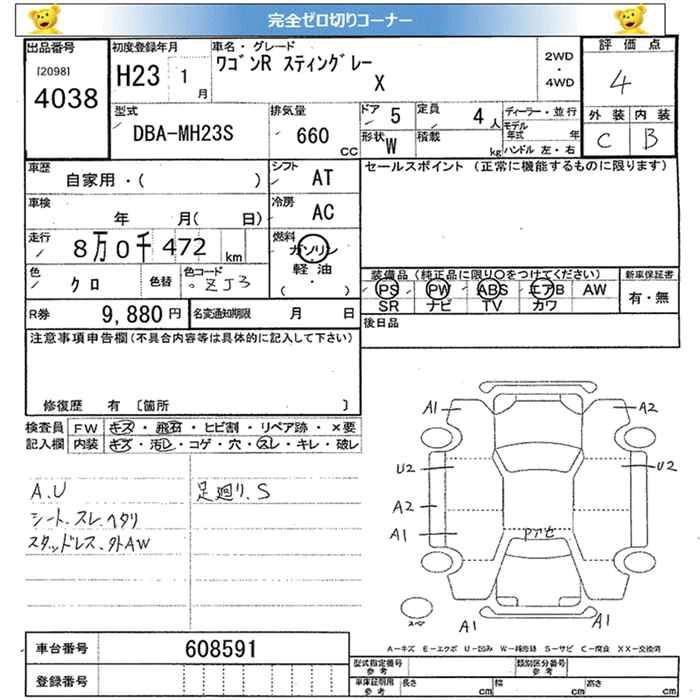 完全ゼロ切りコーナー
出品番号
[2098]
4038
初度登録年月
H23 1月
車名・グレード
ワゴンR スティングレー
X
2WD・4WD
評価点
4
外装 内装
C B
型式
DBA-MH23S
排気量
660 CC
ドア 5
定員 4人
形状 W
積載 kg
ディーラー・並行
モデル年式 年
ハンドル 左・右
車歴
自家用・( )
シフト AT
車検
年 月( 日)
冷房 AC
走行
8万0千472 km
燃料
ガソリン
軽油
( ・ )
色
クロ
色替
色コード
ZJ3
R券 9,880円
名変通知期限 月 日
セールスポイント (正常に機能するものに限ります)
装備品(純正品に限り○をつけてください)
PS PW ABS エアB AW
SR ナビ TV カワ
新車保証書
有・無
後日品
注意事項申告欄(不具合内容等は具体的に記入して下さい)
修復歴 有 〔箇所 〕
検査員記入欄
FW キズ・飛石・ヒビ割・リペア跡・×要
内装 キズ・汚レ・コゲ・穴・スレ・キレ・破レ
A.U
足廻り.S
シート.スレ.ヘタリ
スタッドレス.外AW
A1 A2
U2 U2
A2
A1
Pアセ
スペ
A1 A1
A-キズ E-エクボ U-凹み W-補修跡 S-サビ C-腐食 XX-交換済
車台番号 608591
登録番号
型式指定番号 参考
類別区分番号 参考
車庫証明用 参考 長さ cm 幅 cm 高さ cm